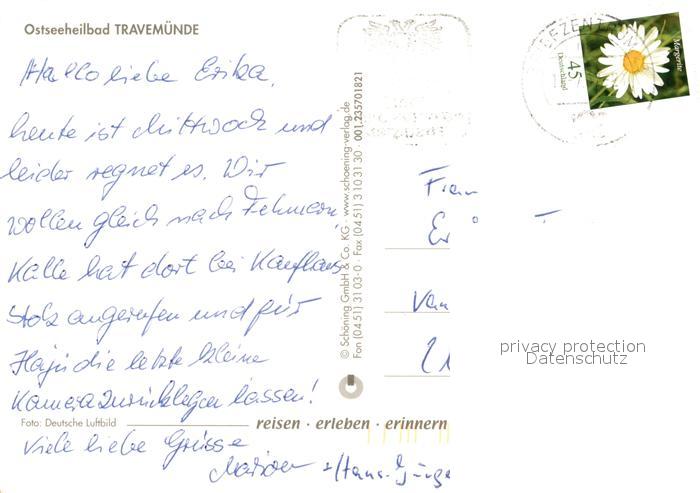 Ostseeheilbad TRAVEMÜNDE
Hallo liebe Erika,
heute ist Mittwoch und
leider regnet es. Wir
wollen gleich nach Fehmarn,
Kalle hat dort bei Kaufhaus
Stolz angerufen und für
Hajü die letzte kleine
Kamera zurücklegen lassen!
Viele liebe Grüsse
Marion + Hans-Jürge
Foto: Deutsche Luftbild
reisen · erleben · erinnern
© Schöning GmbH & Co. KG · www.schoening-verlag.de
Fon (04 51) 31 03-0 · Fax (04 51) 3 10 31 30 · 001 235701821
BRIEFZENTRUM
45
Deutschland
Margerite
Frau
Er
privacy protection
Datenschutz